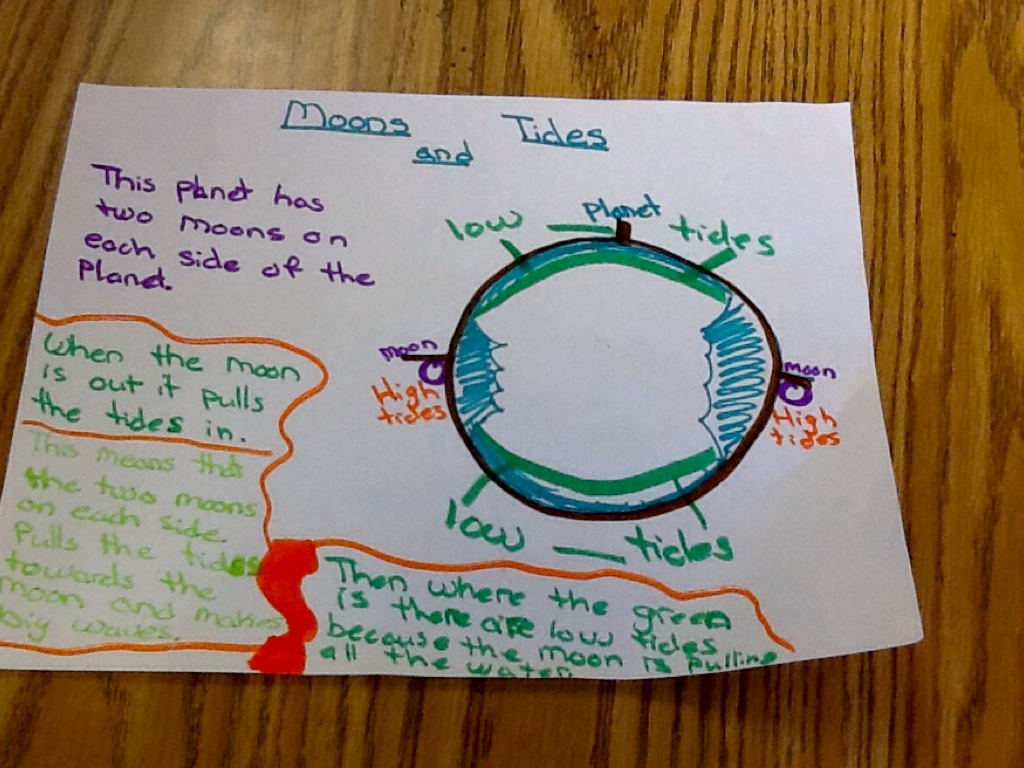 Moons Tides
and
This planet has
two moons on
each side of the
Planet.
When the moon
is out it pulls
the tides in.
This means that
the two moons
on each side
Pulls the tides
towards the
moon and makes
big waves.
Planet
low — tides
moon
High
tides
moon
High
tides
low — tides
Then where the green
is there are low tides
because the moon is pulling
all the water.